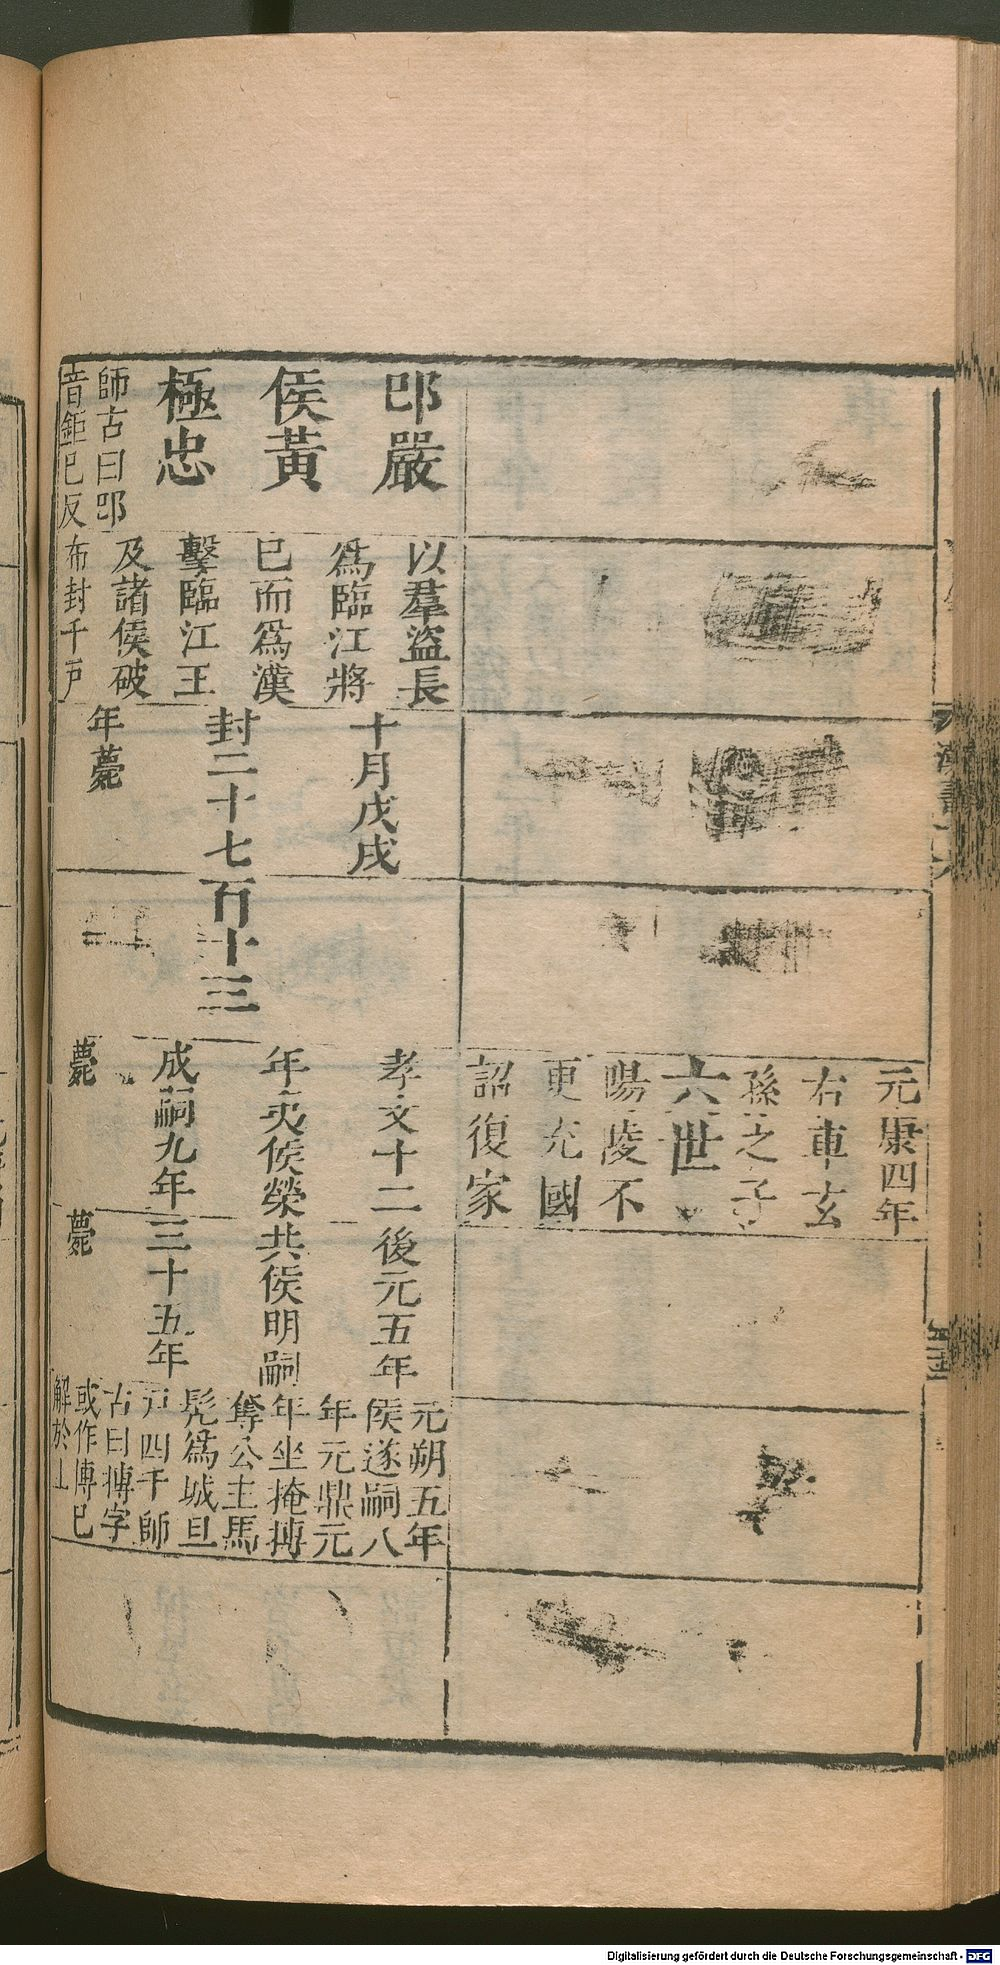 元康四年
右車玄
孫之子
六世
陽陵不
更充國
詔復家
邔嚴
侯黃
極忠
師古曰邔
音鉅已反
以羣盜長
爲臨江將
已而爲漢
擊臨江王
及諸侯破
布封千戶
十月戊戌
封二十七
年薨
百十三
孝文十二
年夷侯榮
成嗣九年
薨
後元五年
共侯明嗣
三十五年
薨
元朔五年
侯遂嗣八
年元鼎元
年坐掩搏
奪公主馬
髠爲城旦
戶四千師
古曰搏字
或作博已
解於上
漢書
Digitalisierung gefördert durch die Deutsche Forschungsgemeinschaft - DFG